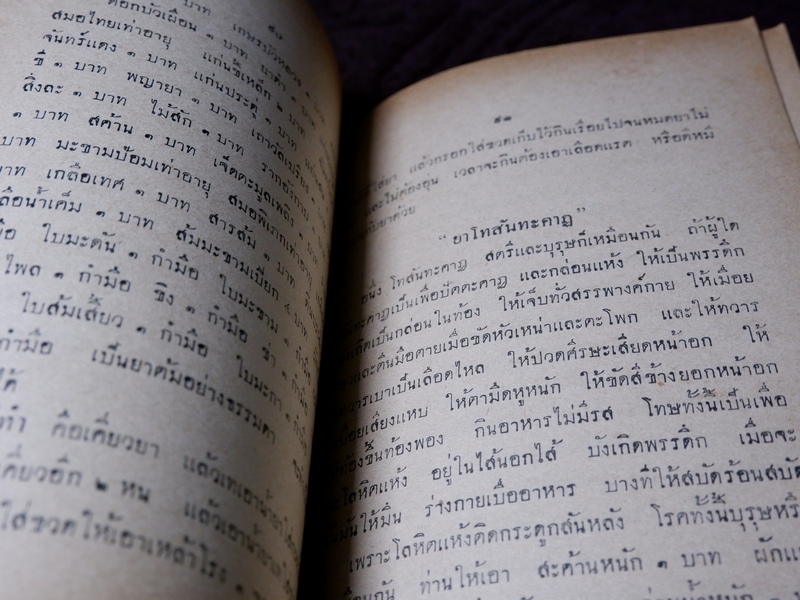 บาท เกษรบัวหลวง
ดอกบัวเผื่อน ๑ บาท ยาดำ ๑
สมอไทยเท่าอายุ แก่นขี้เหล็ก ๒ บาท
จันทร์แดง ๑ บาท แก่นประดู่ ๑ บาท
ขี้ ๑ บาท พญายา ๑ บาท เถาวัลเปรียง
สิ่งละ ๑ บาท ไม้สัก ๑ บาท รากอังกาบ
๑ บาท สค้าน ๑ บาท เจ็ดตะมูลเพลิง ๑
บาท มะขามป้อมเท่าอายุ สมอพิเภกเท่าอายุ
บาท เกลือเทศ ๑ บาท สารส้ม ๑ บาท
น้ำเค็ม ๑ บาท ส้มมะขามเปียก
ใบมะดัน ๑ กำมือ ใบมะขาม ๑ กำมือ
ไพล ๑ กำมือ ขิง ๑ กำมือ ข่า ๑ กำมือ
ใบส้มเสี้ยว ๑ กำมือ ใบมะกา ๑ กำมือ
กำมือ เป็นยาต้มอย่างธรรมดา
ได้
ทำ คือเคี่ยวยา แล้วเทเอาน้ำยา
เคี่ยวอีก ๒ หน แล้วเอาน้ำยา
ใส่ขวดให้เอาเหล้าโรง ๑ ขวด
๕๓
ใส่ยา แล้วกรอกใส่ขวดเก็บไว้กินเรื่อยไปจนหมดยาไม่
และไม่ต้องอุ่น เวลาจะกินต้องเอาเลือดแรด หรือดีหมี
กับยาด้วย
“ยาโทสันทะคาฏ”
อนึ่ง โทสันทะคาฏ สตรีและบุรุษก็เหมือนกัน ถ้าผู้ใด
ทะคาฏเป็นเพื่อปัตคะคาฏ และกล่อนแห้ง ให้เป็นพรรดึก
เกิดเป็นกล่อนในท้อง ให้เจ็บทั่วสรรพางค์กาย ให้เมื่อย
และตีนมือตายเมื่อขัดหัวเหน่าและตะโพก และให้ทวาร
ทวารเบาเป็นเลือดไหล ให้ปวดศีรษะเสียดหน้าอก ให้
เสียงแหบ ให้ตามืดหูหนัก ให้ขัดสีข้างยอกหน้าอก
ท้องขึ้นท้องพอง กินอาหารไม่มีรส โทษทั้งนี้เป็นเพื่อ
โลหิตแห้ง อยู่ในไส้นอกไส้ บังเกิดพรรดึก เมื่อจะ
มันให้มึน ร่างกายเบื่ออาหาร บางทีให้สบัดร้อนสบัด
เพราะโลหิตแห้งติดกระดูกสันหลัง โรคทั้งนี้บุรุษหรือ
กัน ท่านให้เอา สะค้านหนัก ๑ บาท ผักแพว